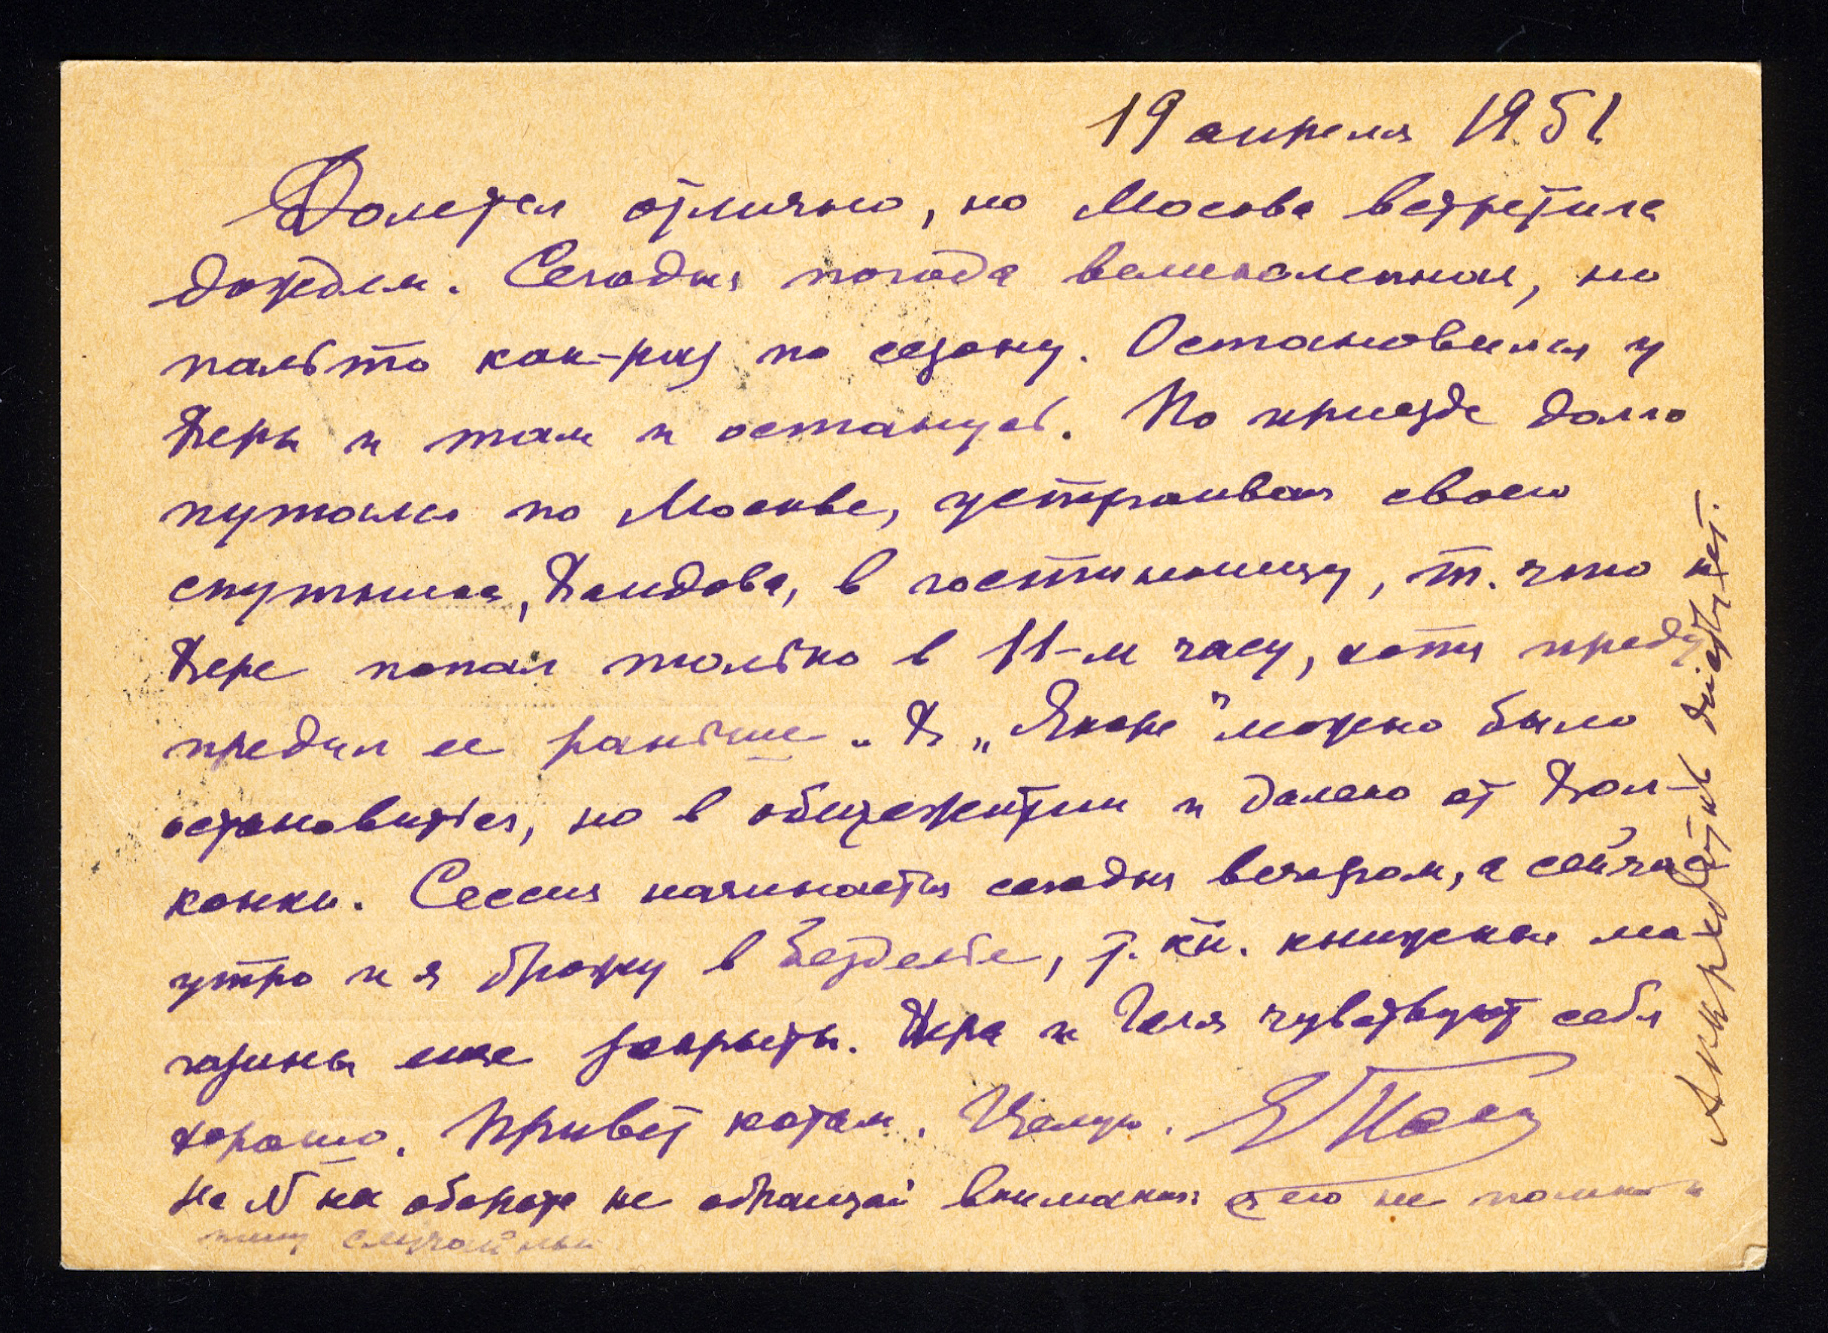 19 апреля 1951.
Долетел отлично, но Москва встретила
дождем. Сегодня погода великолепная, но
пальто как-раз по сезону. Остановился у
Веры и там и останусь. По приезде долго
путались по Москве, устраивая своего
спутника, в гостинницу, т. что к
Вере попал только в 11-м часу, хотя преду
предил ее раньше. В „Якоре" можно было
остановиться, но в общежитии и далеко от Вол-
конки. Сессия начинается сегодня вечером, а сейчас
утро и я брожу в безделье, т. к. книжные ма-
газины еще закрыты. Вера и Галя чувствуют себя
хорошо. Привет котам. Целую.
На № на обороте не обращай внимания я его не помню и
пишу случайный